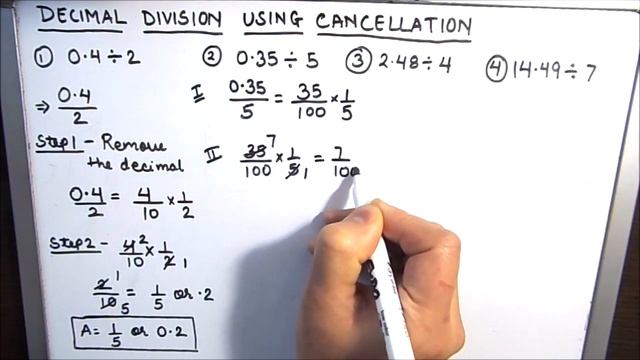 DECIMAL DIVISION USING CANCELLATION
① 0.4÷2
② 0.35÷5
③ 2.48÷4
④ 14.49÷7
⇒ 0.4/2
Step1 - Remove
the decimal
0.4/2 = 4/10 × 1/2
Step2 - 4 2/10 × 1/2 1
2 1/10 5 = 1/5 or .2
A = 1/5 or 0.2
I 0.35/5 = 35/100 × 1/5
II 35 7/100 × 1/5 1 = 7/100